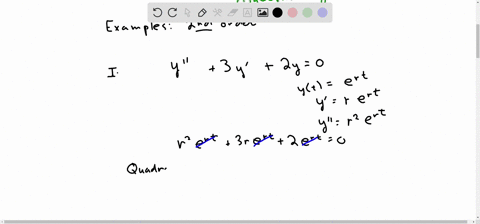 Examples: 2nd order
I. y'' + 3y' + 2y = 0
y(t) = e^{rt}
y' = r e^{rt}
y'' = r² e^{rt}
r² e^{rt} + 3r e^{rt} + 2 e^{rt} = 0
Quadr